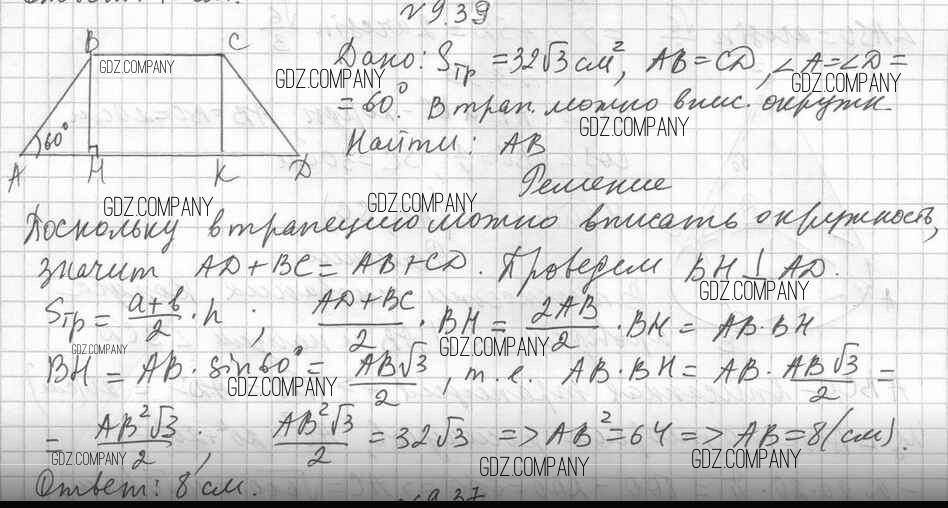 №9.39
B C
Дано: Sтр = 32√3 см², AB = CD, ∠A = ∠D =
= 60°. В трап. можно впис. окружн.
60°
Найти: AB
A H K D
Решение
Поскольку в трапецию можно вписать окружность,
значит AD + BC = AB + CD. Проведем BH ⊥ AD.
Sтр = (a+b)/2 · h ; (AD+BC)/2 · BH = 2AB/2 · BH = AB · BH
BH = AB · sin60° = AB√3/2, т.е. AB · BH = AB · AB√3/2 =
= AB²√3/2 ; AB²√3/2 = 32√3 => AB² = 64 => AB = 8 (см).
Ответ: 8 см.
№9.37
GDZ.COMPANY
GDZ.COMPANY
GDZ.COMPANY
GDZ.COMPANY
GDZ.COMPANY
GDZ.COMPANY
GDZ.COMPANY
GDZ.COMPANY
GDZ.COMPANY
GDZ.COMPANY
GDZ.COMPANY
GDZ.COMPANY
GDZ.COMPANY